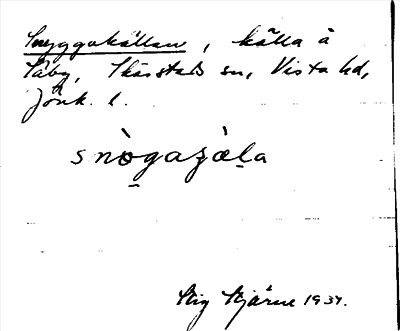 Snyggakällan, källa å
Säby, Skärstads sn, Vista hd,
Jönk. l.
snògaʒàla
Stig Stjärne 1934.